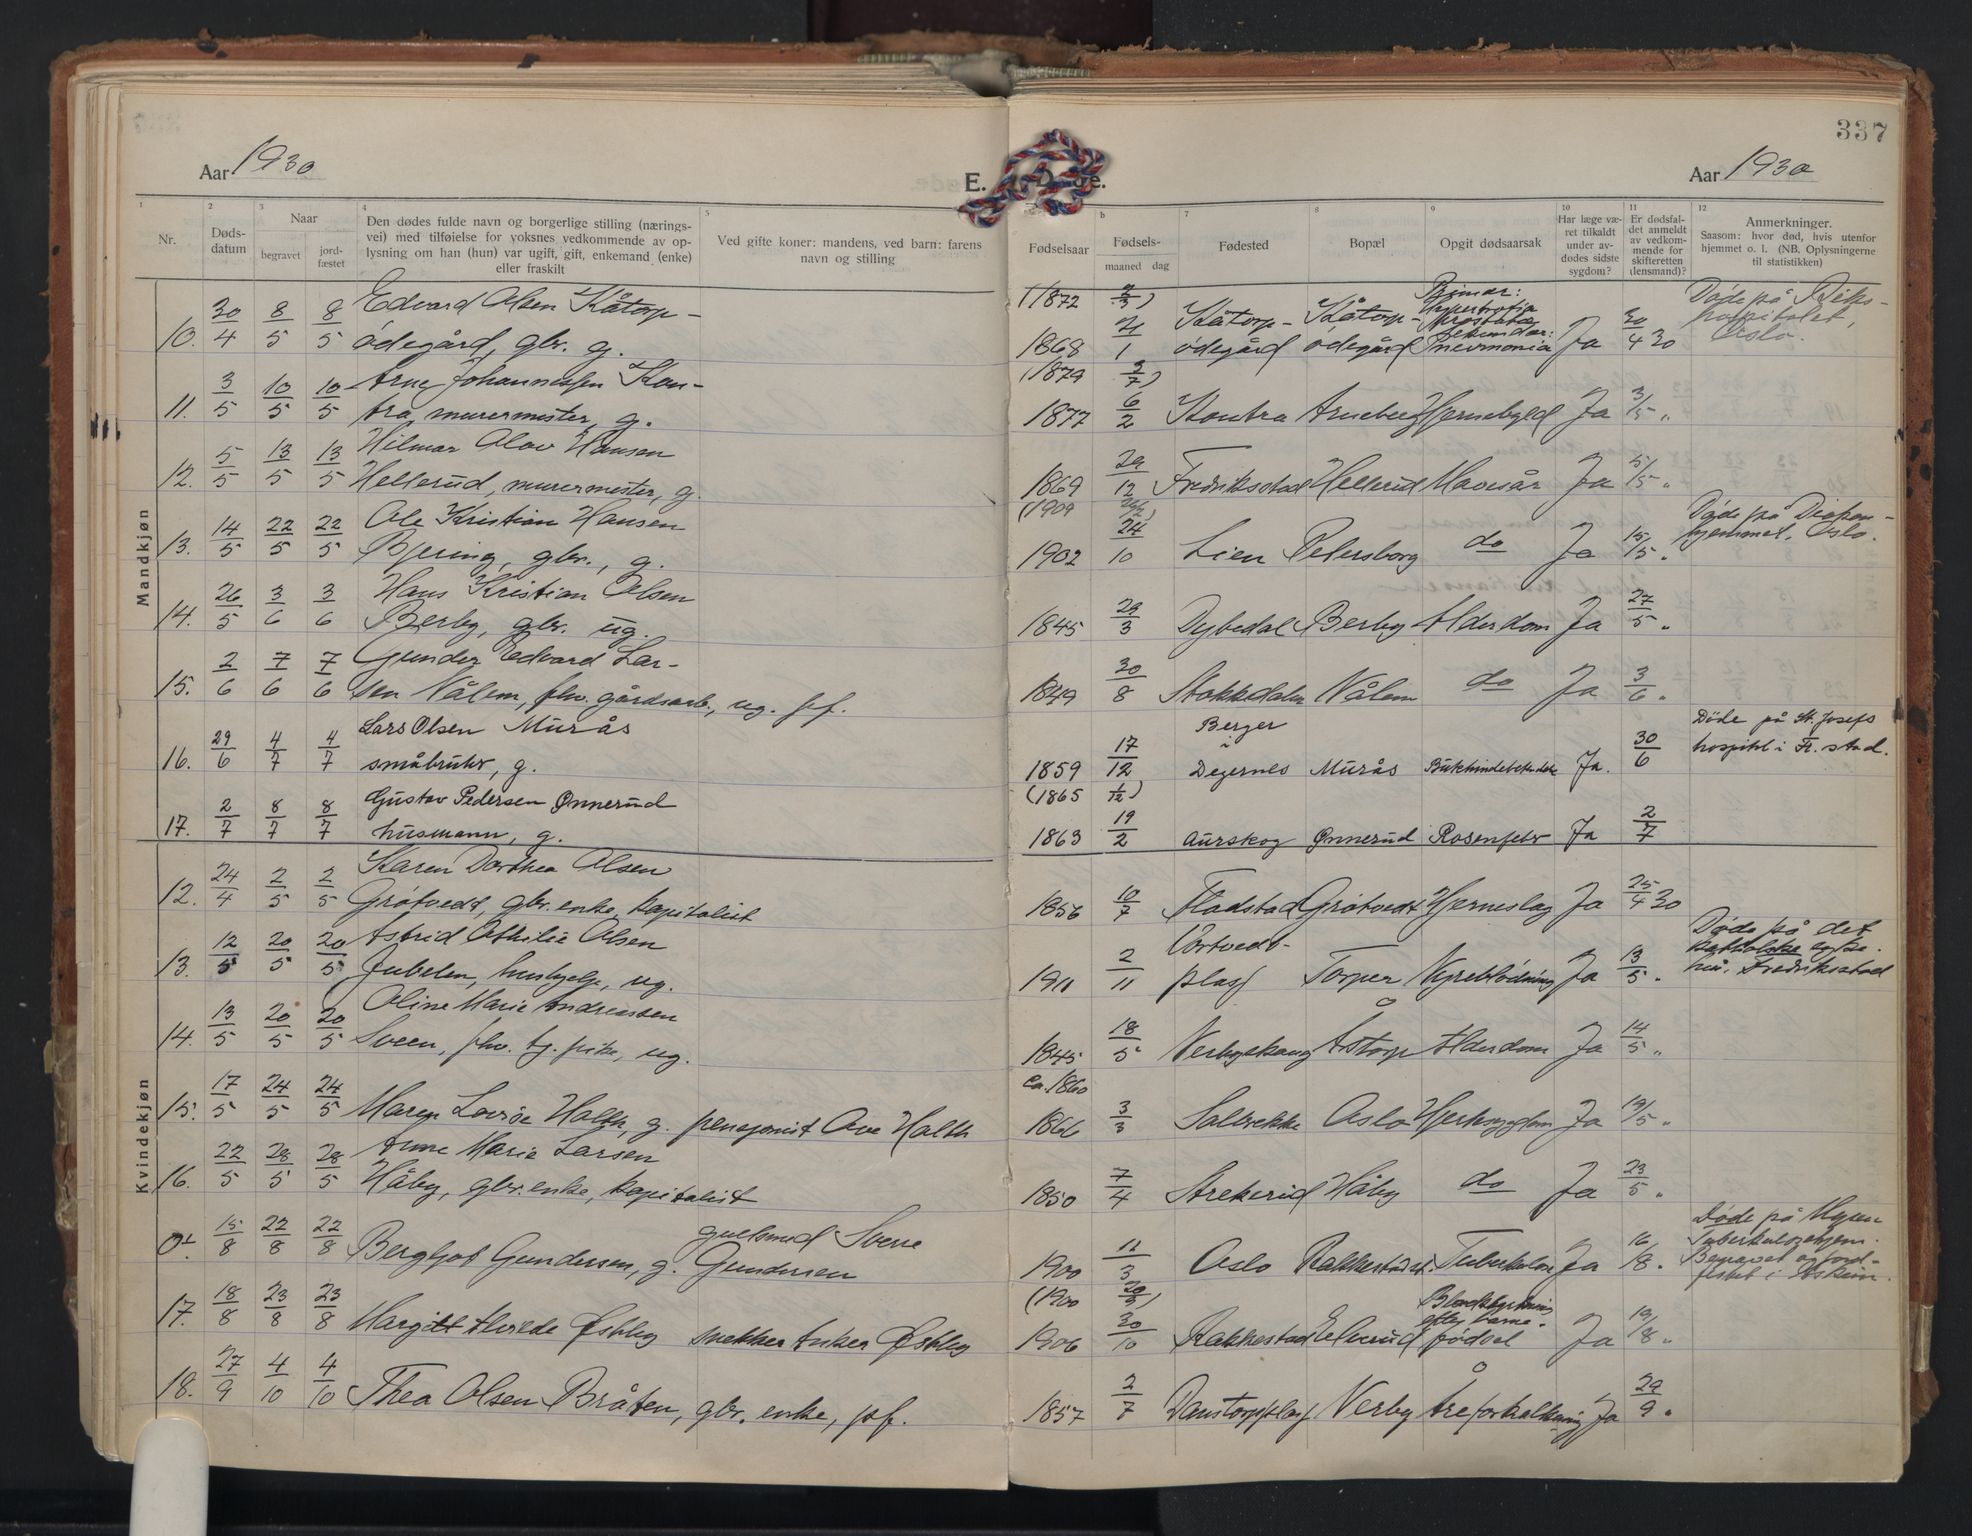 337
Aar 1930
E. Døde.
Aar 1930
1
Nr.
2
Døds-
datum
3
Naar
begravet
jord-
fæstet
4
Den dødes fulde navn og borgerlige stilling (nærings-
vei) med tilføielse for voksnes vedkommende av op-
lysning om han (hun) var ugift, gift, enkemand (enke)
eller fraskilt
5
Ved gifte koner: mandens, ved barn: farens
navn og stilling
Fødselsaar
b
Fødsels-
maaned dag
7
Fødested
8
Bopæl
9
Opgit dødsaarsak
10
Har læge væ-
ret tilkaldt
under av-
dødes sidste
sygdom?
11
Er dødsfal-
det anmeldt
av vedkom-
mende for
skifteretten
(lensmand)?
12
Anmerkninger.
Saasom: hvor død, hvis utenfor
hjemmet o. l. (NB. Oplysningerne
til statistikken)
Mandkjøn
10. 30/4 8/5 8/5 Edvard Olsen Kåtorp-
ødegård, gbr. g.
(1872 2/3)
1868 21/1 Kåtorp-ødegård Kåtorp-ødegård Primær: Hypertrofia Prostatæ Sekundær: Pneumonia Ja 30/4 30 Døde på Riks-
hospitalet,
Oslo.
11. 3/5 10/5 10/5 Arne Johannessen Kon-
tra, murermester, g.
(1879 2/7)
1877 6/2 Kontra Arneberg Hjernebyld Ja 3/5 "
12. 5/5 13/5 13/5 Hilmar Olav Hansen
Hellerud, murermester, g.
1869 29/12 Fredriksstad Hellerud Mavesår Ja 5/5 "
13. 14/5 22/5 22/5 Ole Kristian Hansen
Bjering, gbr., g.
(1909
1902 24/10 Lien Petersborg do Ja 15/5 " Døde på Diakon-
hjemmet, Oslo.
14. 26/5 3/6 3/6 Hans Kristian Olsen
Berby, gbr. ug.
1845 29/3 Dybedal Berby Alderdom Ja 27/5 "
15. 2/6 7/6 7/6 Gunder Edvard Lar-
sen Nålem, fhv. gårdsarb., ug. ff.
1849 30/8 Stokkedalen Nålem do Ja 3/6 "
16. 29/6 4/7 4/7 Lars Olsen Murås
småbruker, g.
1859 17/12 Berger i Degernes Murås Ja. 30/6 Døde på St. Josefs
hospital i Fr.stad.
17. 2/7 8/7 8/7 Gustav Pedersen Ønnerud
husmann, g.
(1865 1/12)
1863 19/2 Aurskog Ønnerud Rosenfeber Ja 2/7
Kvindekjøn
12. 24/4 2/5 2/5 Karen Dorthea Olsen
Grøtvedt, gbr. enke, kapitalist
1856 10/7 Fladstad Grøtvedt Hjerneslag Ja 25/4 30
13. 12/5 20/5 20/5 Astrid Othilie Olsen
Jubelen, hushjelp, ug.
1911 2/11 Vortvedt-plass Torper Nyreblødning Ja 13/5 " Døde på det
katholske syke-
hus, Fredriksstad
14. 13/5 20/5 20/5 Oline Marie Andreassen
Sveen, fhv. tj. pike, ug.
1845 18/5 Verbyskaug Åstorp Alderdom Ja 14/5 "
15. 17/5 24/5 24/5 Maren Lovise Holth, g. pensjonist Ove Holth
ca. 1860
1866 3/3 Solbrekke Oslo Hjertesygdom Ja 19/5 "
16. 22/5 28/5 28/5 Anne Marie Larsen
Håby, gbr. enke, kapitalist
1850 7/4 Strekerud Håby do Ja 23/5 "
15/8 22/8 22/8 Bergljot Gundersen, g. gullsmed Sverre
Gundersen
1900 11/3 Oslo Rakkestad st. Tuberkulose Ja 16/8 " Døde på Mysen
Tuberkulosehjem.
Begravet og jord-
festet i Askim.
17. 18/8 23/8 23/8 Margitt Alvide Østby snekker Anker Østby
(1900 20/3)
1906 30/10 Rakkestad Elverud Blodstyrtning efter barne-fødsel Ja 19/8 "
18. 27/9 4/10 4/10 Thea Olsen Bråten, gbr. enke, fsf.
1857 2/7 Danstorpplass Verby Åreforkalkning Ja 29/9 "